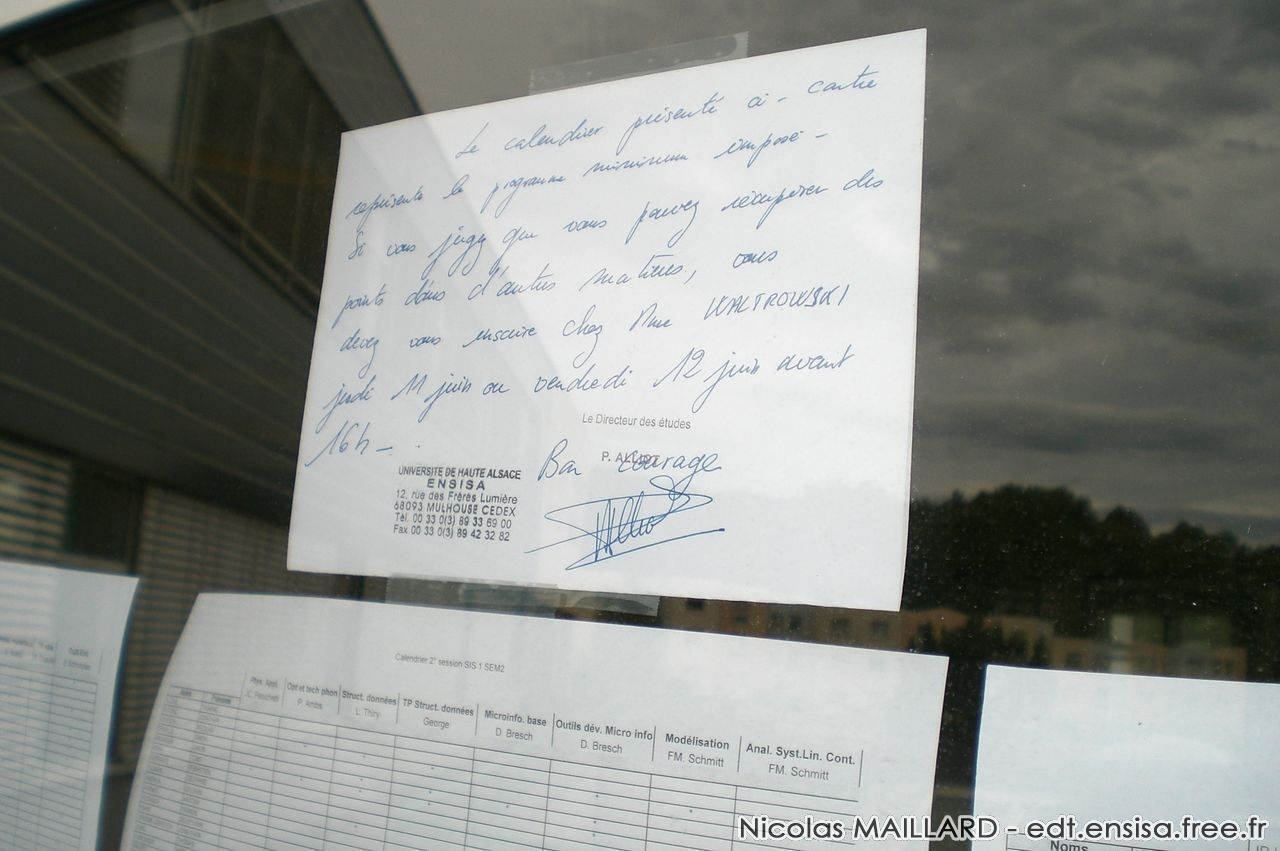 Le calendrier présenté ci-contre
représente le programme minimum imposé -
Si vous jugez que vous pouvez récupérer des
points dans d'autres matières, vous
devez vous inscrire chez Mme WALTROWSKI
jeudi 11 juin ou vendredi 12 juin avant
16h -
Le Directeur des études
Bon courage
UNIVERSITE DE HAUTE ALSACE
ENSISA
12, rue des Frères Lumière
68093 MULHOUSE CEDEX
Tél. 00 33 0(3) 89 33 69 00
Fax 00 33 0(3) 89 42 32 82
Calendrier 2° session SIS 1 SEM2
Phys. Appl. Opt et tech phon Struct. données TP Struct. données Microinfo. base Outils dév. Micro info Modélisation Anal. Syst.Lin. Cont.
P. Ambs L. Thiry George D. Bresch D. Bresch FM. Schmitt FM. Schmitt
Noms
Nicolas MAILLARD - edt.ensisa.free.fr